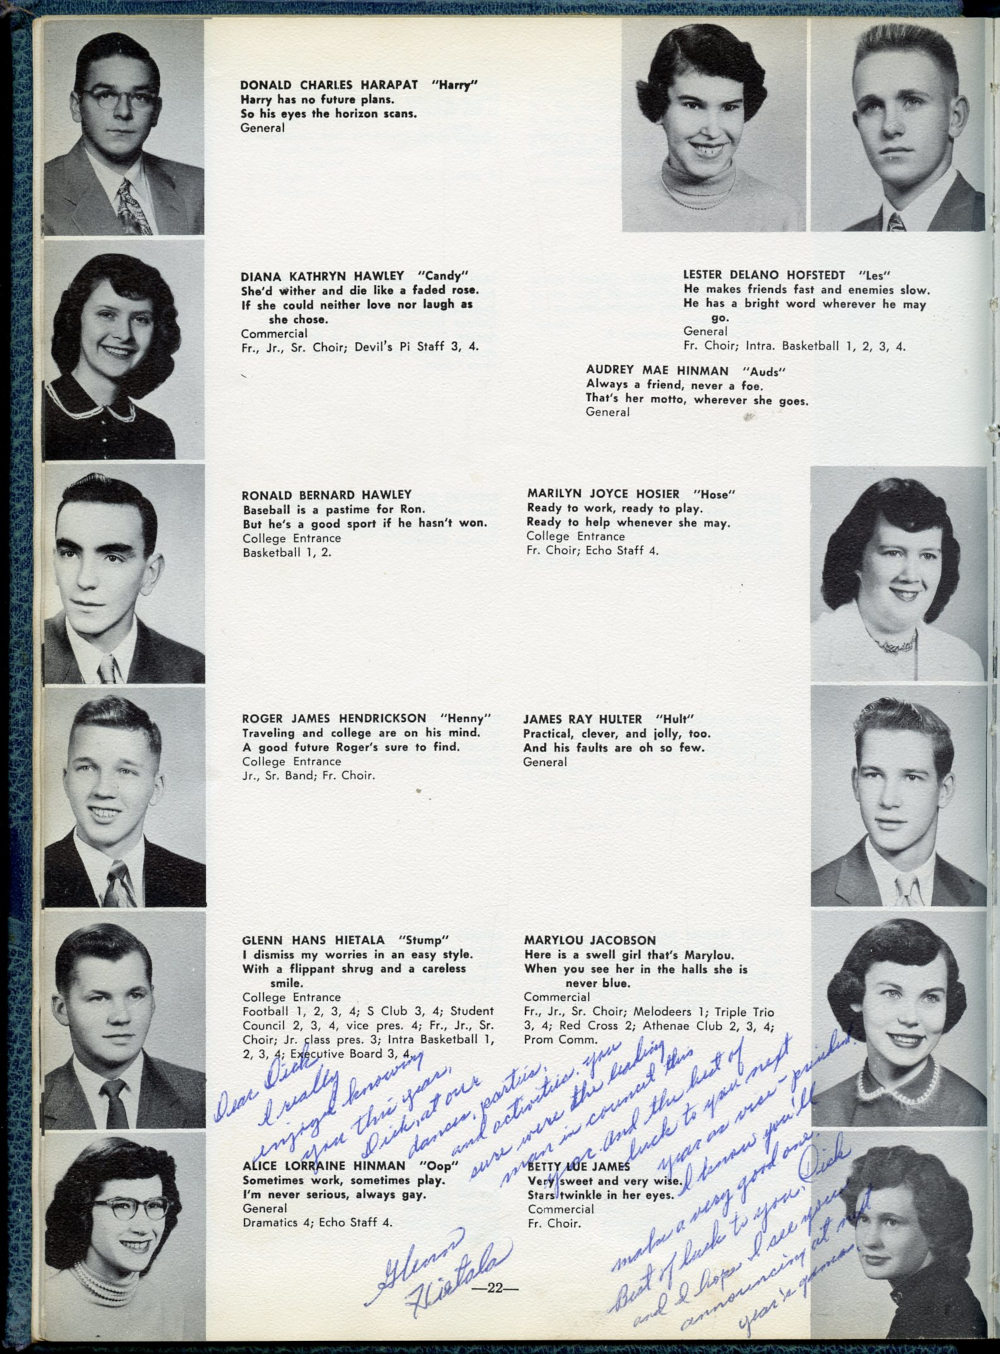 DONALD CHARLES HARAPAT "Harry"
Harry has no future plans.
So his eyes the horizon scans.
General
DIANA KATHRYN HAWLEY "Candy"
She'd wither and die like a faded rose.
If she could neither love nor laugh as
she chose.
Commercial
Fr., Jr., Sr. Choir; Devil's Pi Staff 3, 4.
LESTER DELANO HOFSTEDT "Les"
He makes friends fast and enemies slow.
He has a bright word wherever he may
go.
General
Fr. Choir; Intra. Basketball 1, 2, 3, 4.
AUDREY MAE HINMAN "Auds"
Always a friend, never a foe.
That's her motto, wherever she goes.
General
RONALD BERNARD HAWLEY
Baseball is a pastime for Ron.
But he's a good sport if he hasn't won.
College Entrance
Basketball 1, 2.
MARILYN JOYCE HOSIER "Hose"
Ready to work, ready to play.
Ready to help whenever she may.
College Entrance
Fr. Choir; Echo Staff 4.
ROGER JAMES HENDRICKSON "Henny"
Traveling and college are on his mind.
A good future Roger's sure to find.
College Entrance
Jr., Sr. Band; Fr. Choir.
JAMES RAY HULTER "Hult"
Practical, clever, and jolly, too.
And his faults are oh so few.
General
GLENN HANS HIETALA "Stump"
I dismiss my worries in an easy style.
With a flippant shrug and a careless
smile.
College Entrance
Football 1, 2, 3, 4; S Club 3, 4; Student
Council 2, 3, 4, vice pres. 4; Fr., Jr., Sr.
Choir; Jr. class pres. 3; Intra Basketball 1,
2, 3, 4; Executive Board 3, 4.
MARYLOU JACOBSON
Here is a swell girl that's Marylou.
When you see her in the halls she is
never blue.
Commercial
Fr., Jr., Sr. Choir; Melodeers 1; Triple Trio
3, 4; Red Cross 2; Athenae Club 2, 3, 4;
Prom Comm.
ALICE LORRAINE HINMAN "Oop"
Sometimes work, sometimes play.
I'm never serious, always gay.
General
Dramatics 4; Echo Staff 4.
BETTY LUE JAMES
Very sweet and very wise.
Stars twinkle in her eyes.
Commercial
Fr. Choir.
Dear Dick
I really
enjoyed knowing
you this year,
Dick, at our
dances, parties,
and activities. you
sure were the leading
man in council this
year and the best of
luck to you next
year as vice-president.
I know you'll
make a very good one.
Best of luck to you, Dick
and I hope I see you
announcing at next
year's games
Glenn
Hietala
—22—